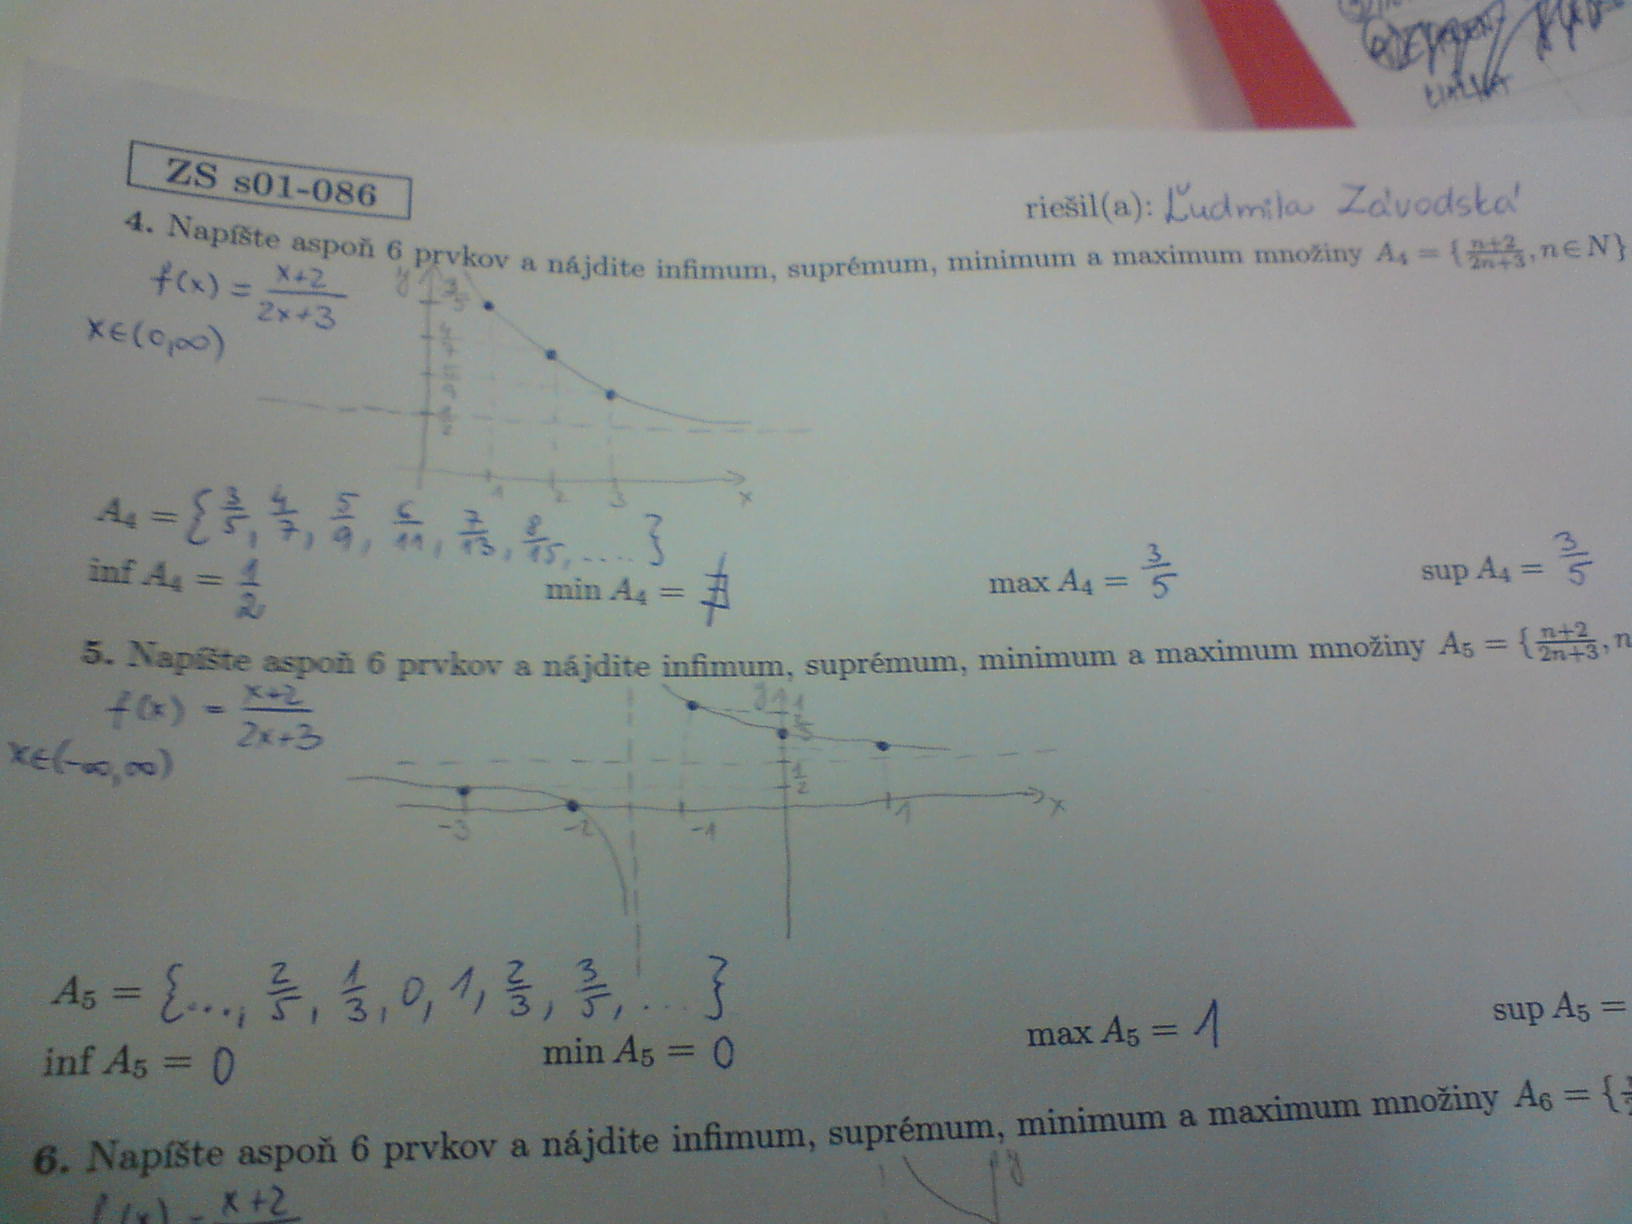 ZS s01-086
riešil(a): Ľudmila Závodská
4. Napíšte aspoň 6 prvkov a nájdite infimum, suprémum, minimum a maximum množiny A₄ = {(n+2)/(2n+3), n∈N}
f(x) = (x+2)/(2x+3)
x∈(0,∞)
y
1 2 3 x
A₄ = {3/5, 4/7, 5/9, 6/11, 7/13, 8/15, .... }
inf A₄ = 1/2 min A₄ = ∄ max A₄ = 3/5 sup A₄ = 3/5
5. Napíšte aspoň 6 prvkov a nájdite infimum, suprémum, minimum a maximum množiny A₅ = {(n+2)/(2n+3), n
f(x) = (x+2)/(2x+3)
x∈(-∞,∞)
y 1
1/2
-3 -2 -1 1 x
A₅ = {..., 2/5, 1/3, 0, 1, 2/3, 3/5, ... }
inf A₅ = 0 min A₅ = 0 max A₅ = 1 sup A₅ =
6. Napíšte aspoň 6 prvkov a nájdite infimum, suprémum, minimum a maximum množiny A₆ = {
y
f(x) = x+2